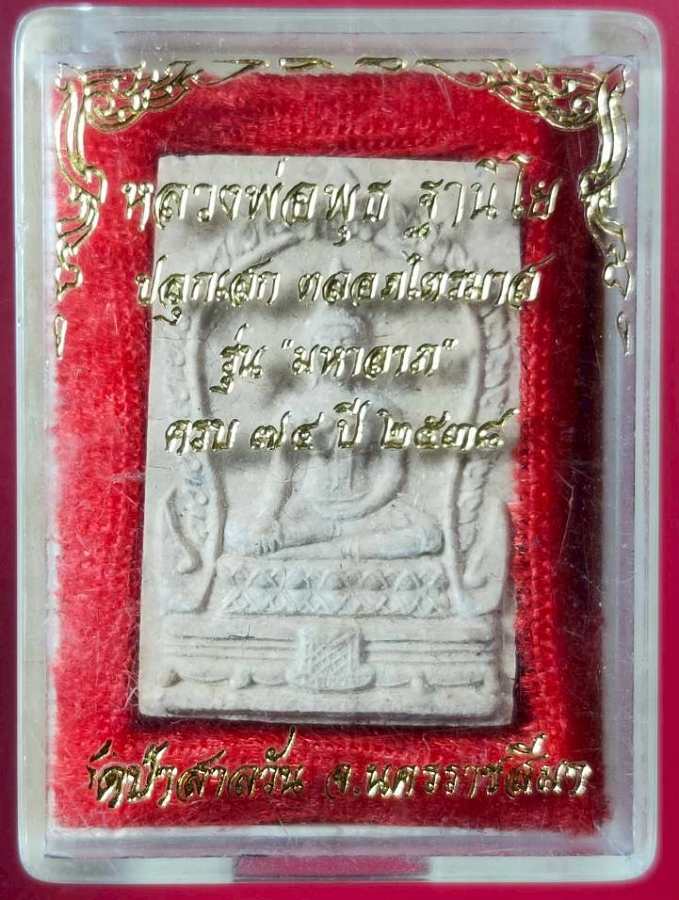 หลวงพ่อพุธ ฐานิโย
ปลุกเสก ตลอดไตรมาส
รุ่น "มหาลาภ"
ครบ ๗๔ ปี ๒๕๓๘
วัดป่าสาลวัน จ.นครราชสีมา